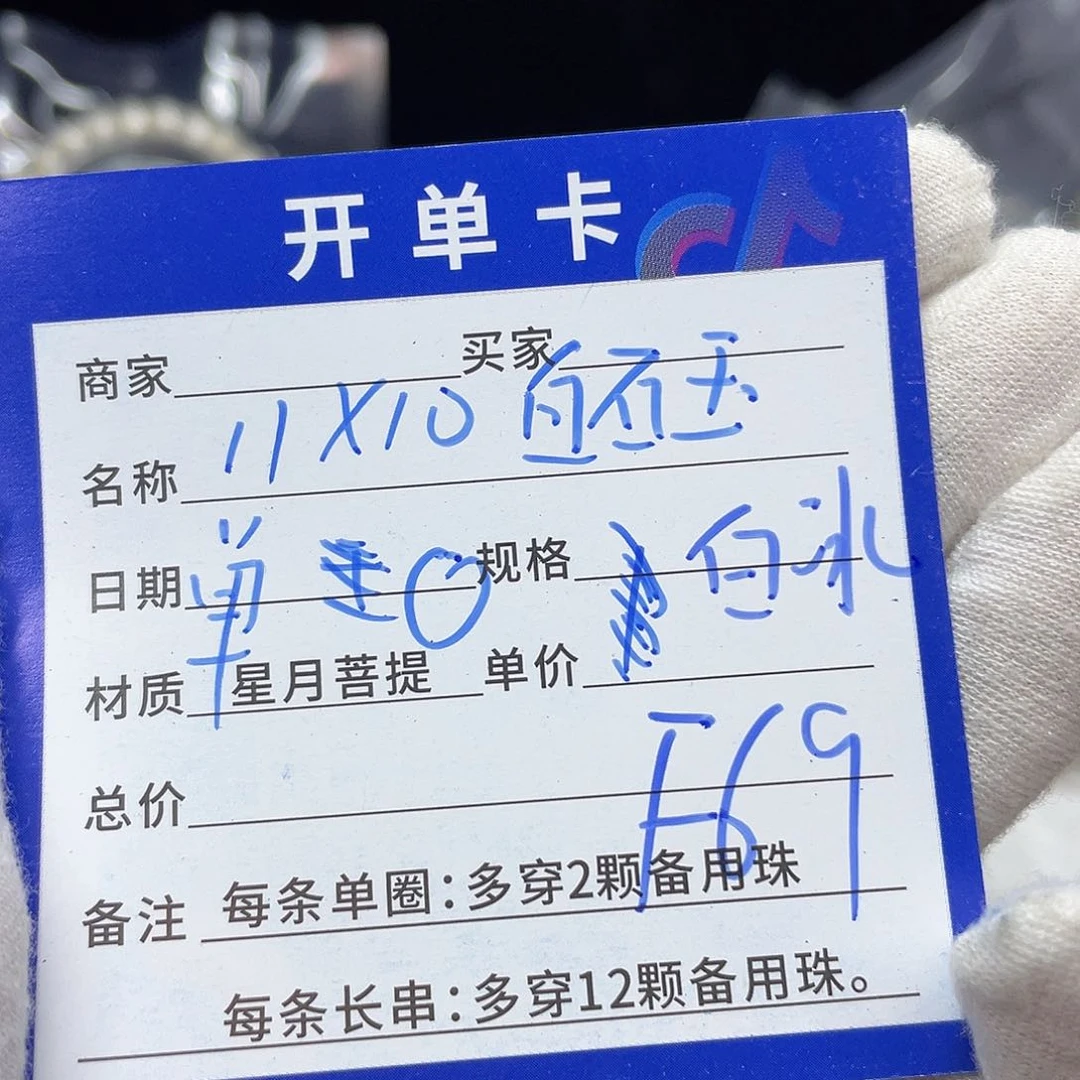 开单卡
商家 买家
名称 11X10 白石玉
日期 单 规格 白冰
材质 星月菩提 单价
总价 F69
备注 每条单圈:多穿2颗备用珠
每条长串:多穿12颗备用珠。